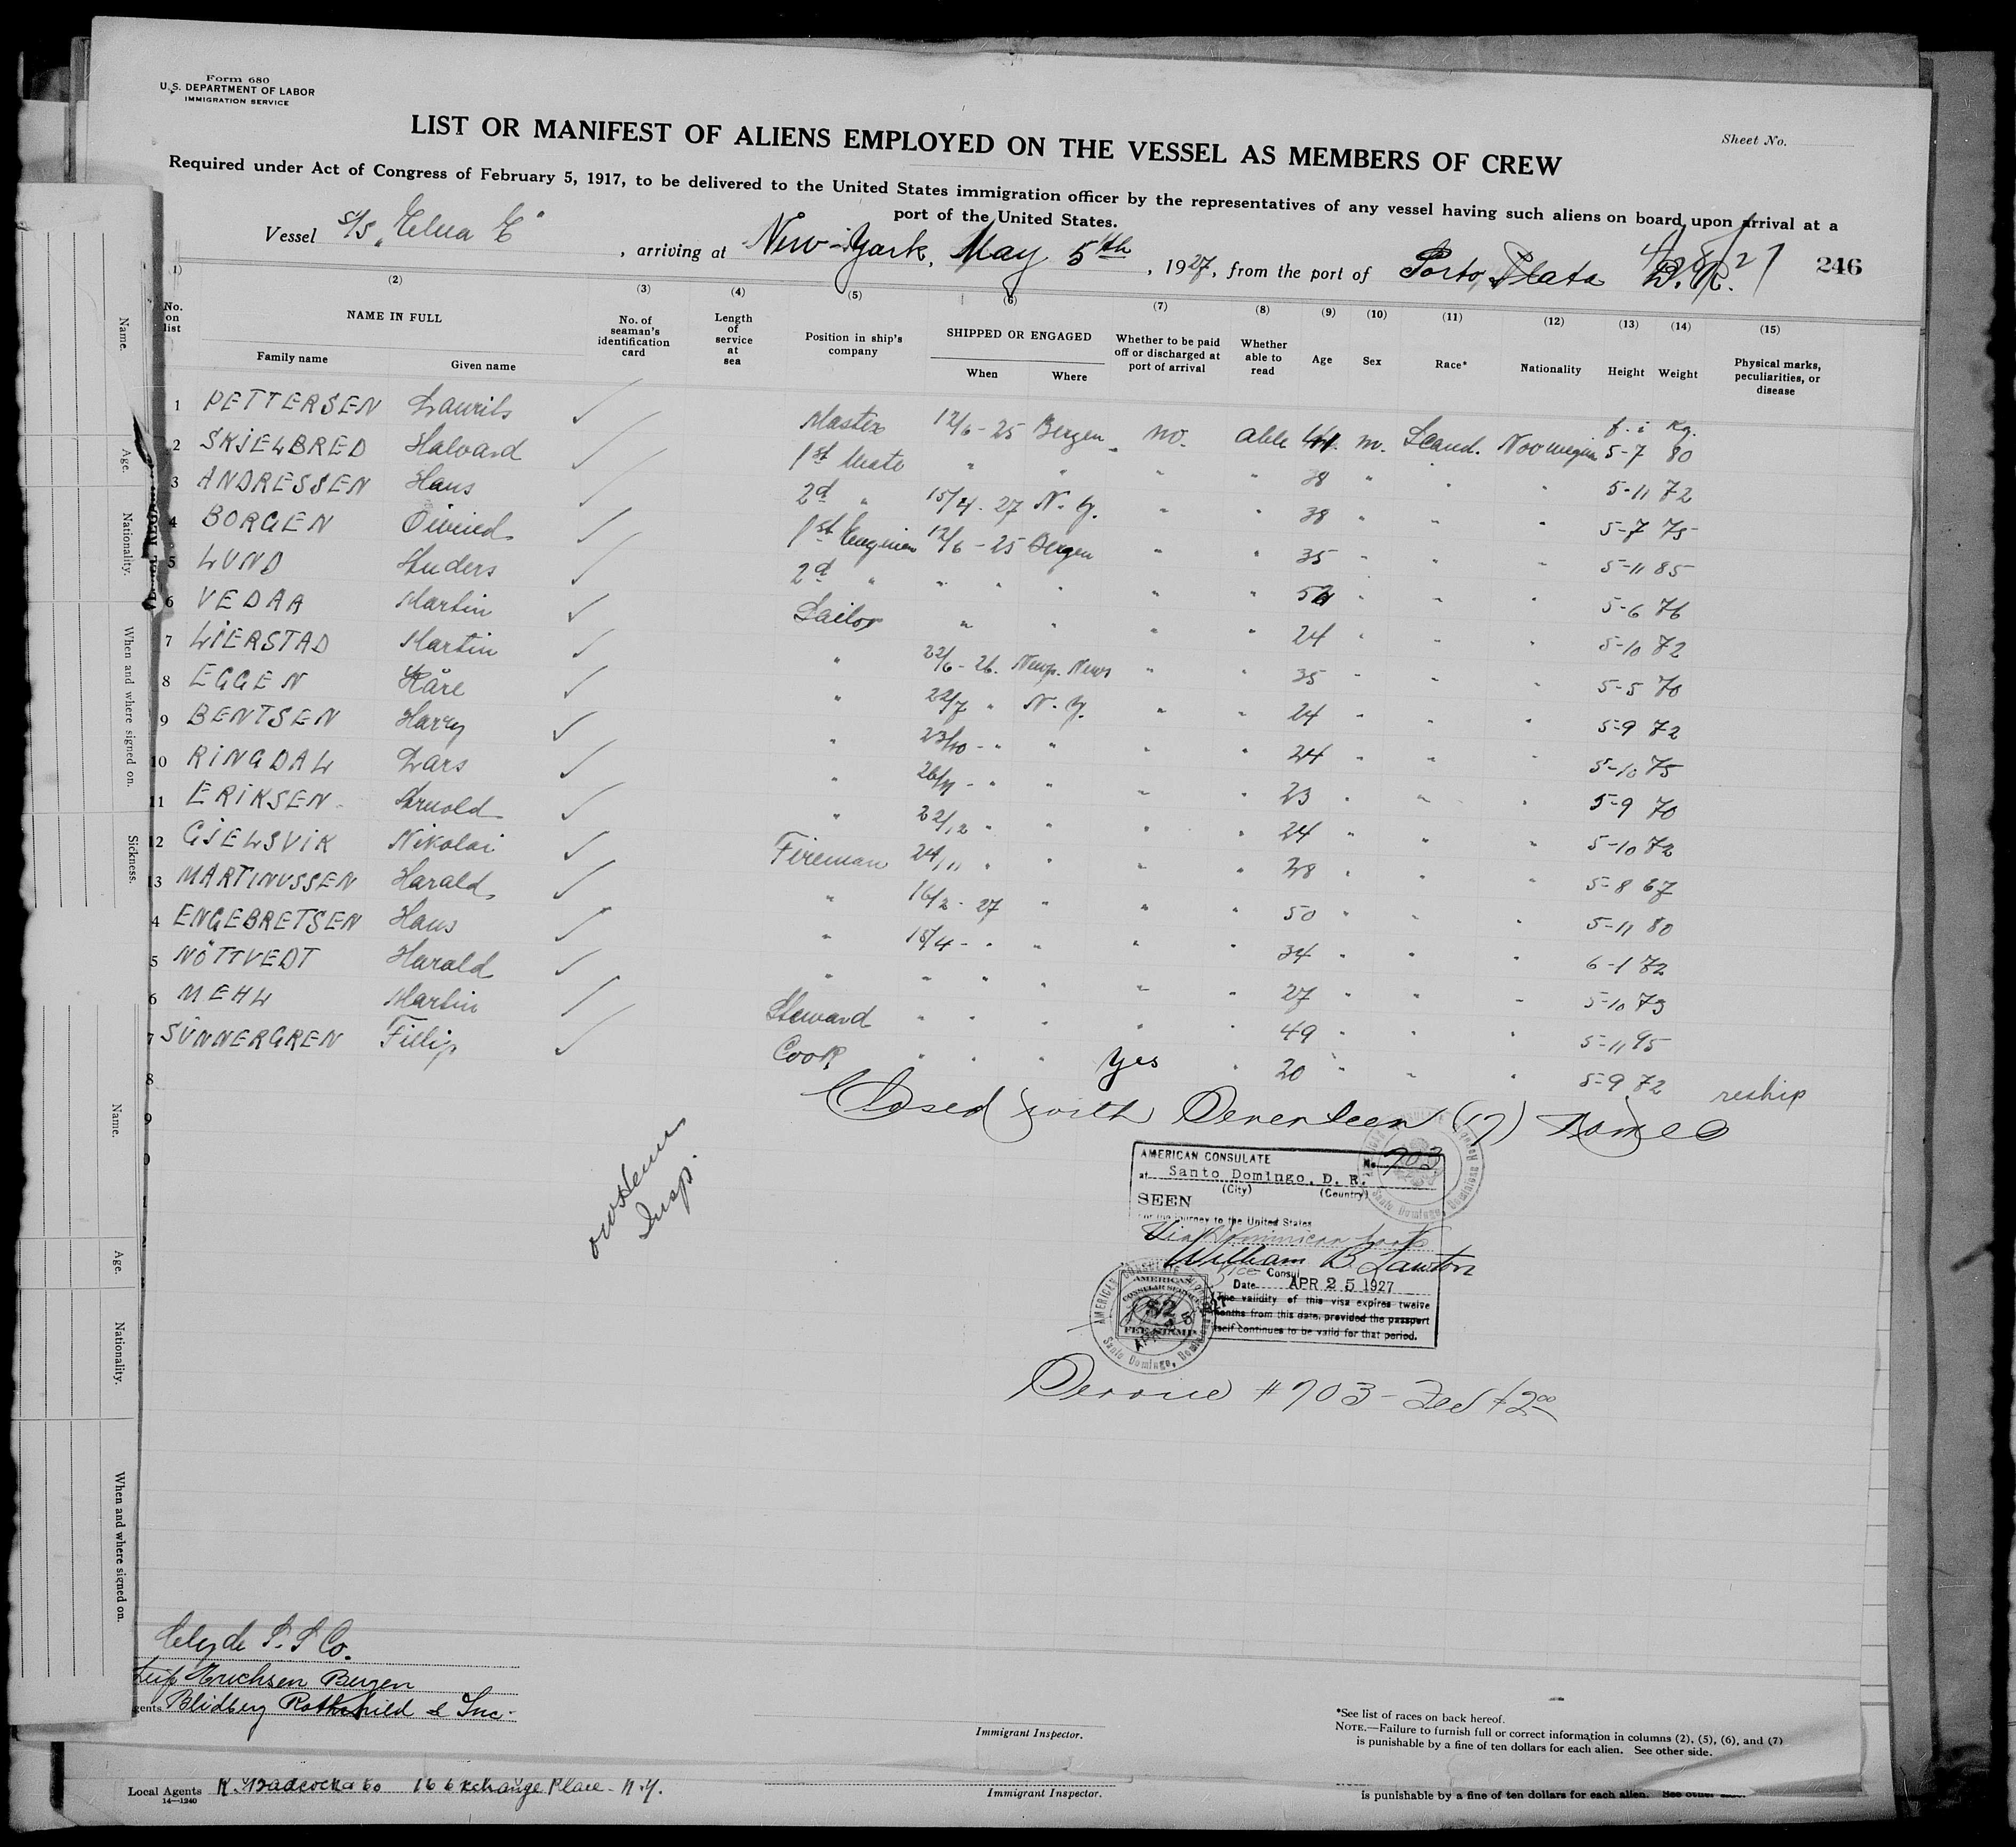 Form 680
U.S. DEPARTMENT OF LABOR
IMMIGRATION SERVICE
Sheet No.
LIST OR MANIFEST OF ALIENS EMPLOYED ON THE VESSEL AS MEMBERS OF CREW
Required under Act of Congress of February 5, 1917, to be delivered to the United States immigration officer by the representatives of any vessel having such aliens on board upon arrival at a
port of the United States.
Vessel S/S "Elna E" , arriving at New-York, May 5th , 1927, from the port of Porto Plata D.R. 4/28/27
246
(1) (2) (3) (4) (5) (6) (7) (8) (9) (10) (11) (12) (13) (14) (15)
No. on list
NAME IN FULL
Family name
Given name
No. of seaman's identification card
Length of service at sea
Position in ship's company
SHIPPED OR ENGAGED
When
Where
Whether to be paid off or discharged at port of arrival
Whether able to read
Age
Sex
Race*
Nationality
Height
Weight
Physical marks, peculiarities, or disease
f. i Kg.
1 PETTERSEN Laurits ✓ Master 12/6-25 Bergen no. able 41 m. Scand. Norwegian 5-7 80
2 SKJELBRED Halvard ✓ 1st Mate " " " " 38 " " " 5-11 72
3 ANDRESSEN Hans ✓ 2d " 15/4-27 N.Y. " " 38 " " " 5-7 75
4 BORGEN Oivind ✓ 1st Engineer 12/6-25 Bergen " " 35 " " " 5-11 85
5 LUND Anders ✓ 2d " " " " " " " " " 5-6 76
6 VEDAA Martin ✓ Sailor " " " " 24 " " " 5-10 72
7 LIERSTAD Martin ✓ " 22/6-26. Newp. News " " 35 " " " 5-5 70
8 EGGEN Kåre ✓ " 22/7 " N.Y. " " 24 " " " 5-9 72
9 BENTSEN Harry ✓ " 23/10-" " " " 24 " " " 5-10 75
10 RINGDAL Lars ✓ " " " " " 23 " " " 5-9 70
11 ERIKSEN Arnold ✓ " 22/12 " " " " 24 " " " 5-10 72
12 GJELSVIK Nikolai ✓ Fireman 24/11 " " " " 28 " " " 5-8 67
13 MARTINUSSEN Harald ✓ " 16/2-27 " " " 50 " " " 5-11 80
4 ENGEBRETSEN Hans ✓ " 15/4-" " " " 34 " " " 6-1 72
5 NÖTTVEDT Harald ✓ " " " " " " 27 " " " 5-10 73
6 MEHL Martin ✓ Steward " " " " " 49 " " " 5-11 95
7 SUNNERGREN Fillip ✓ Cook " " " Yes " 20 " " " 5-9 72 reship
8
9
0
Closed with Seventeen (17) names
Insp.
AMERICAN CONSULATE No. 703
at Santo Domingo, D. R.
(City) (Country)
SEEN
For the journey to the United States
Via Dominican ports
William B. Lawton
Vice Consul
Date APR 25 1927
The validity of this visa expires twelve
months from this date, provided the passport
itself continues to be valid for that period.
AMERICAN CONSULATE
Santo Domingo, Dominican
AMERICAN
CONSULAR SERVICE
$2
FEE STAMP
AMERICAN CONSULATE
Santo Domingo,
Service #703 - Fee $2.00
Clyde S.S. Co.
Leif Erichsen Bergen
gents Blidberg Rothchild & Inc.
Immigrant Inspector.
*See list of races on back hereof.
NOTE.—Failure to furnish full or correct information in columns (2), (5), (6), and (7)
is punishable by a fine of ten dollars for each alien. See other side.
Local Agents 16 Exchange Place - N.Y.
14—1240
Immigrant Inspector.
is punishable by a fine of ten dollars for each alien. See other side.
Name.
Age.
Nationality.
When and where signed on.
Sickness.
Name.
Age.
Nationality.
When and where signed on.